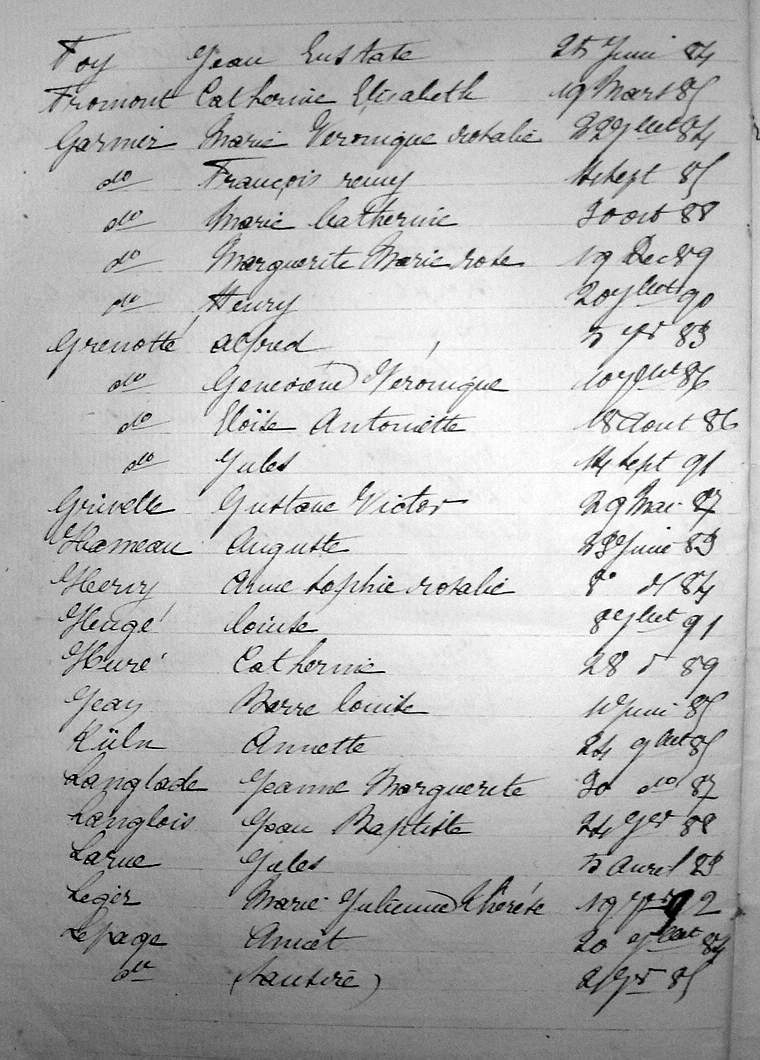 Foy Jean Eustate 25 Juin 84
Fromont Catherine Elisabeth 19 Mars 85
Garnier Marie Veronique rosalie 22 Jllet 84
do François remy 14 sept 85
do Marie Catherine 30 oct 88
do Marguerite Marie rose 19 Dec 89
do Henry 20 Jllet 90
Grenotté alfred 5 83
do Genevieve Véronique 10 Jllet 86
do Eloïse Antoinette 18 Aout 86
do Jules 14 sept 91
Grivelle Gustave Victor 29 Mai 87
Hameau Auguste 23 Juin 83
Henry Anne sophie rosalie 8 d 84
Hengé louise 8 Jllet 91
Huré Catherine 28 d 89
Jeay Pierre louise Juin 85
Küln Annette 24 Jllet 85
Langlade Jeanne Marguerite 30 do 87
Langlois Jean Baptiste 24 88
Larue Jules 5 Avril 83
Leger Marie Julienne thérèse 19 92
Lepage Amiet 20 Jllet 84
do 85